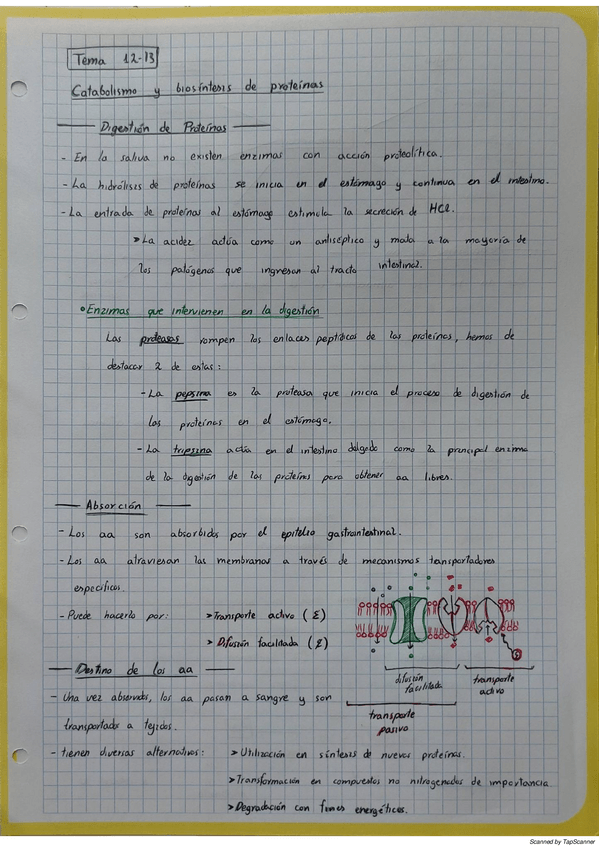 Tema 12-13
Catabolismo y biosíntesis de proteínas
Digestión de Proteínas
- En la saliva no existen enzimas con acción proteolítica.
- La hidrólisis de proteínas se inicia en el estómago y continua en el intestino.
- La entrada de proteínas al estómago estimula la secreción de HCl.
> La acidez actúa como un antiséptico y mata a la mayoría de
los patógenos que ingresan al tracto intestinal.
Enzimas que intervienen en la digestión
Las proteasas rompen los enlaces peptídicos de las proteínas, hemos de
destacar 2 de estas:
- La pepsina es la proteasa que inicia el proceso de digestión de
las proteínas en el estómago.
- La tripsina actúa en el intestino delgado como la principal enzima
de la digestión de las proteínas para obtener aa libres.
Absorción
- Los aa son absorbidos por el epitelio gastrointestinal.
- Los aa atraviesan las membranas a través de mecanismos transportadores
específicos.
- Puede hacerlo por: > Transporte activo (E)
> Difusión facilitada (E)
difusión facilitada
transporte activo
transporte pasivo
Destino de los aa
- Una vez absorbidos, los aa pasan a sangre y son
transportados a tejidos.
- tienen diversas alternativas: > Utilización en síntesis de nuevas proteínas.
> Transformación en compuestos no nitrogenados de importancia
> Degradación con fines energéticos.
Scanned by TapScanner